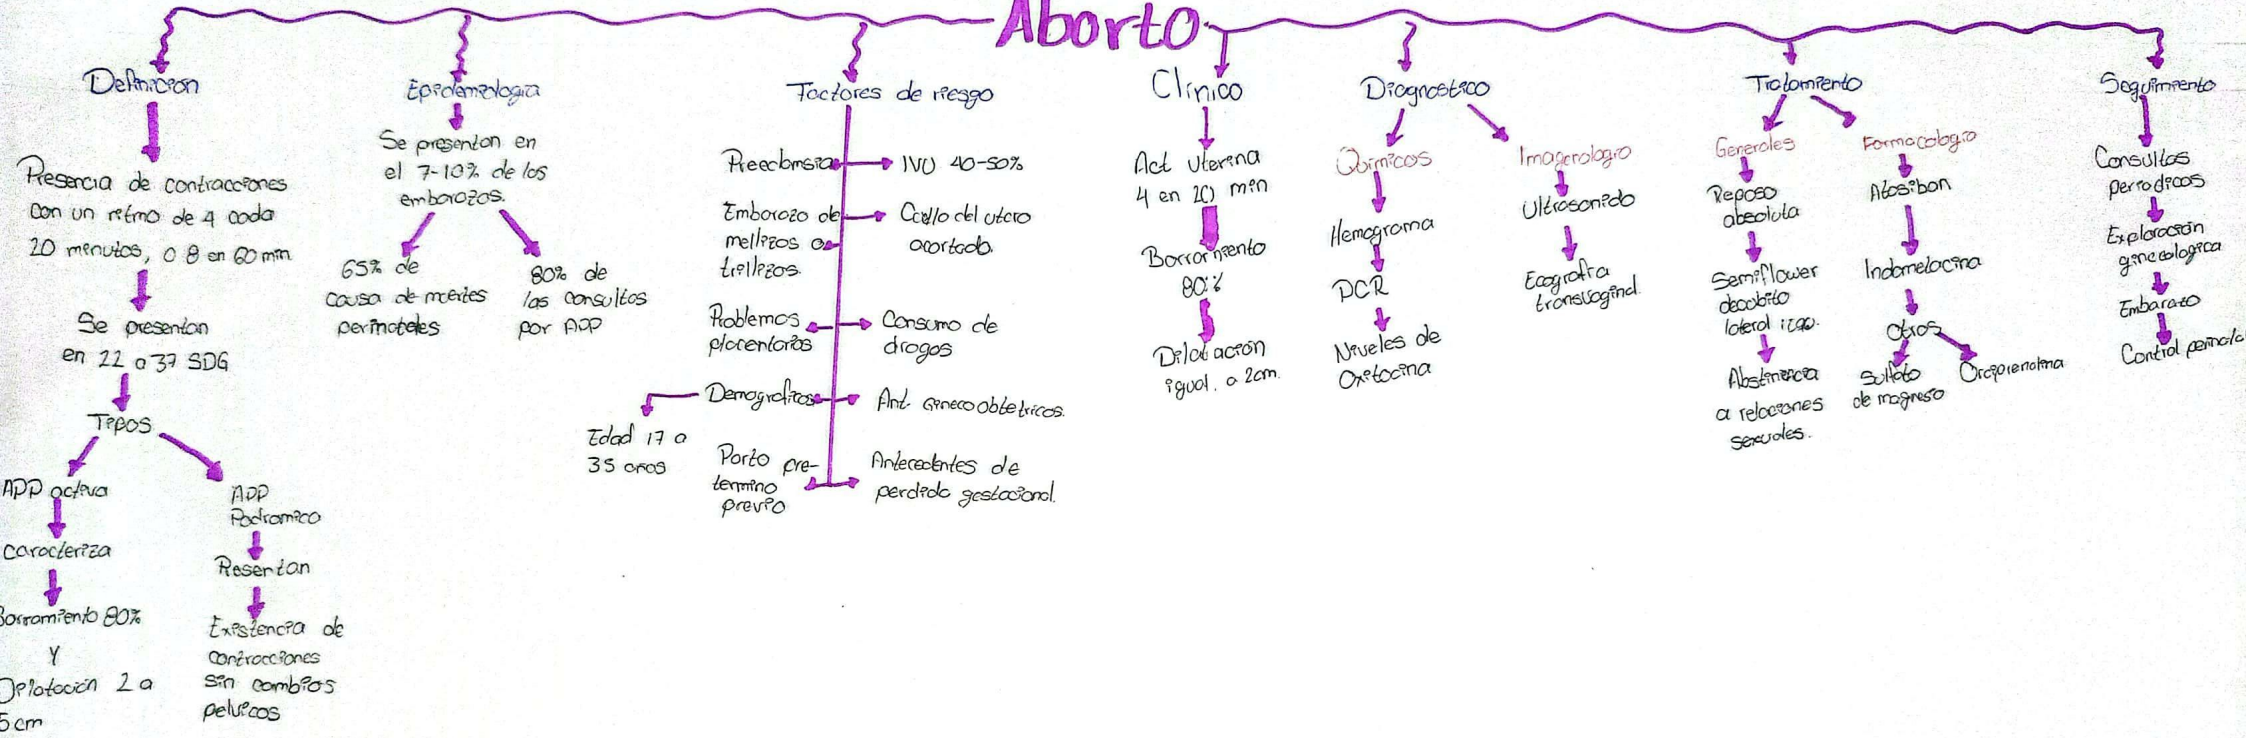 Aborto
Definicion
Presencia de contracciones
con un ritmo de 4 cada
20 minutos, o 8 en 60 min
Se presentan
en 22 a 37 SDG
Tipos
APP activa
caracteriza
Borramiento 80%
Y
Dilatación 2 a
5 cm
APP
Podromico
Presentan
Existencia de
contracciones
sin cambios
pelvicos
Epidemiologia
Se presentan en
el 7-10% de los
embarazos.
65% de
causa de muertes
perinatales
80% de
las consultas
por APP
Factores de riesgo
Preeclamsia
IVU 40-50%
Embarazo de
mellizos o
trillizos.
Cuello del utero
acortado.
Problemas
placentarios
Consumo de
drogas
Demograficos
Edad 17 a
35 años
Ant. Gineco obtetricos.
Parto pre-
termino
previo
Antecedentes de
perdida gestacional.
Clínico
Act uterina
4 en 20 min
Borramiento
80%
Dilatación
igual. a 2cm.
Diagnostico
Quimicos
Hemograma
PCR
Niveles de
Oxitocina
Imagenologia
Ultrasonido
Ecografia
transvaginal.
Tratamiento
Generales
Reposo
absoluta
Semiflower
decobito
lateral izqo.
Abstinencia
a relaciones
sexuales.
Farmacologio
Atosiban
Indometacina
Otros
Sulfato
de magneso
Orciprenalina
Seguimiento
Consultas
periodicas
Exploración
ginecologica
Embarazo
Control perinatal